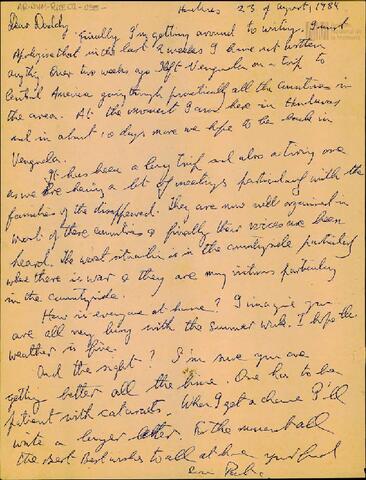 AR-ANM-RREE01-
Honduras 23 of August, 1984.
Dear Daddy
Finally I'm getting around to writing. I must
Apologise that in the last 2 weeks I have not written
anything. Over two weeks ago I left Venezuela on a trip to
Central America going through practically all the countries in
the area. At the moment I am here in Honduras
and in about 10 days more we hope to be back in
Venezuela.
It has been a long trip and also a tiring one
as we are having a lot of meetings particularly with the
families of the disappeared. They are now well organised in
most of these countries & finally their voices are been
heard. The worst situation is in the countryside particularly
where there is war & they are many victims particularly
in the countryside.
How is everyone at home? I imagine you
are all very busy with the Summer work. I hope the
weather is fine.
And the sight? I'm sure you are
getting better all the time. One has to be
patient with cataracts. When I get a chance I'll
write a longer letter. For the moment all
the best. Best wishes to all at home your fond
son